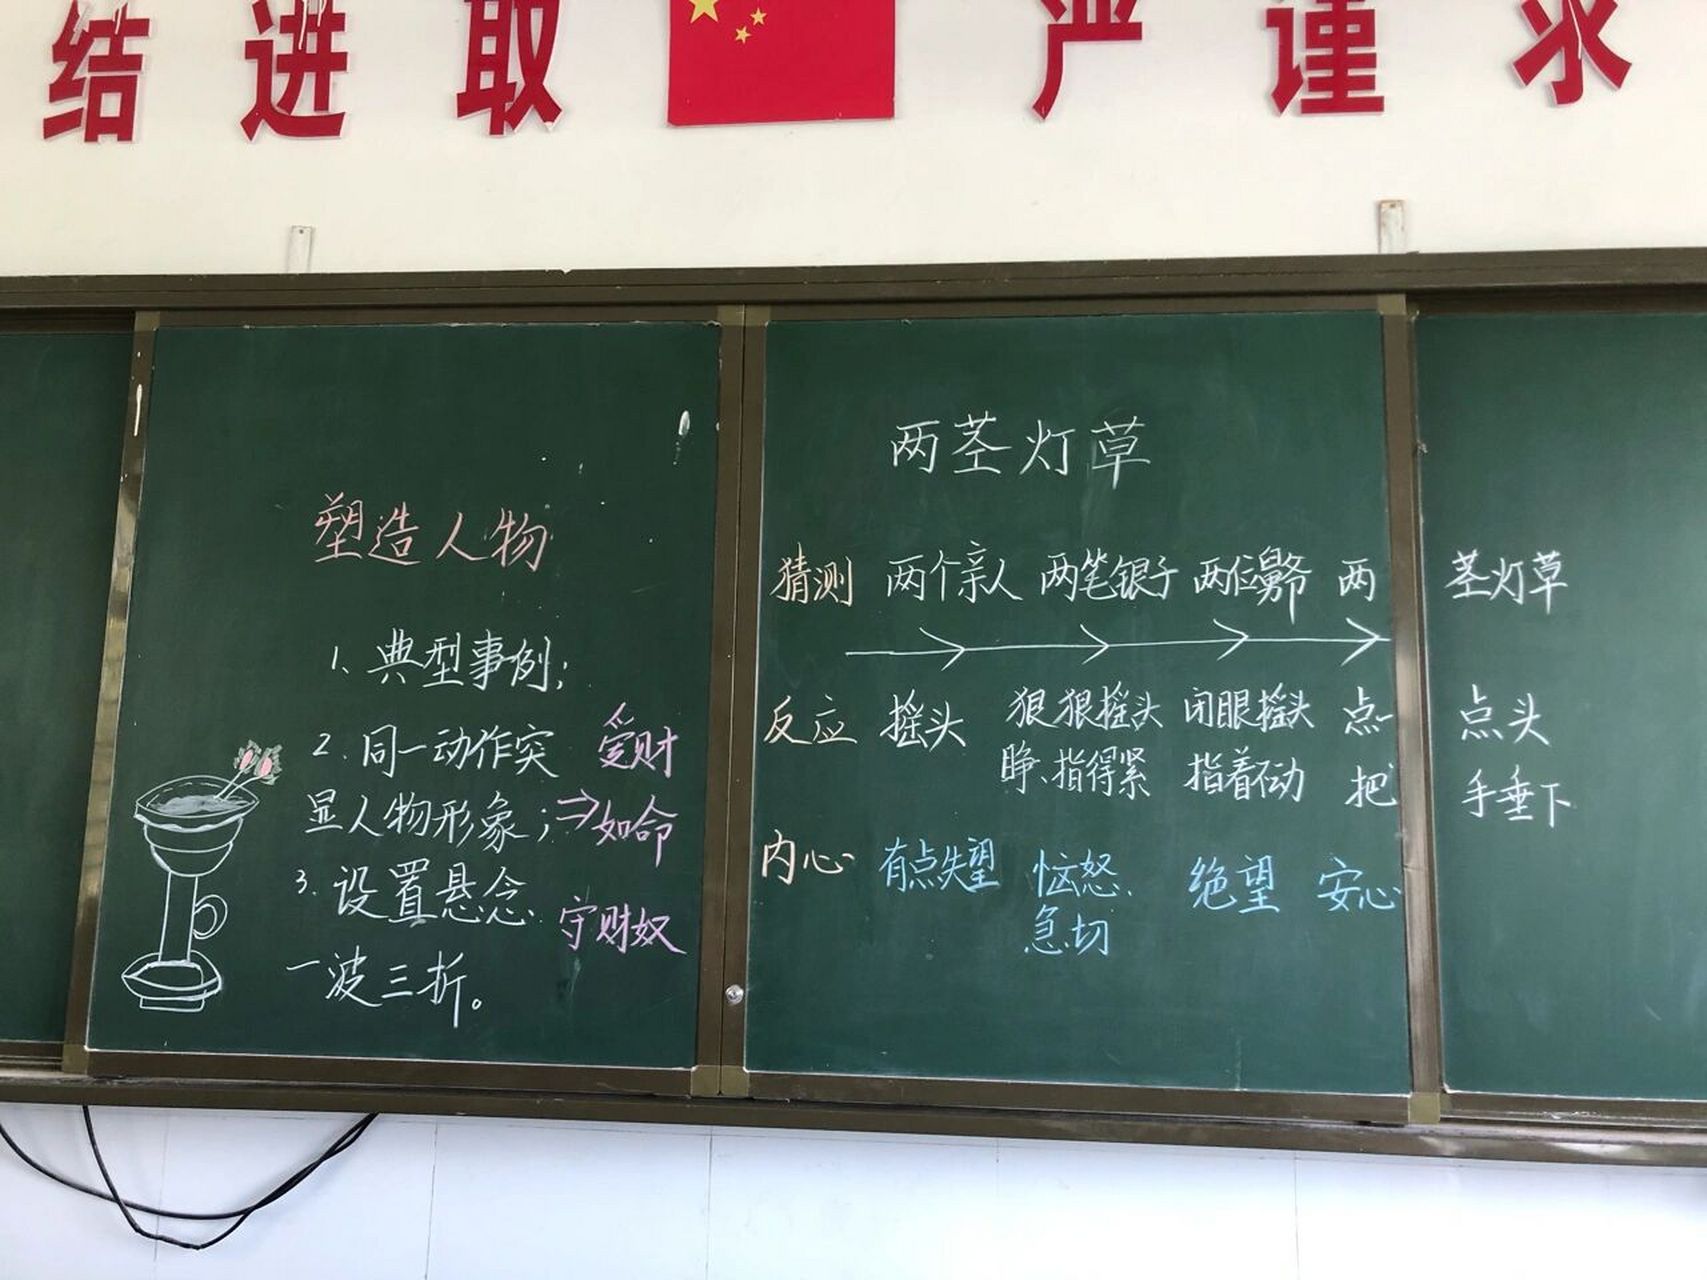 结进取 严谨求
两茎灯草
塑造人物
1、典型事例；
2.同一动作突
显人物形象；⇒
3.设置悬念.
一波三折。
爱财
如命
守财奴
猜测 两个亲人 两笔银子 两位舅爷 两 茎灯草
反应 摇头 狠狠摇头 闭眼摇头 点 点头
睁、指得紧 指着不动 把 手垂下
内心 有点失望 恼怒、 绝望 安心
急切